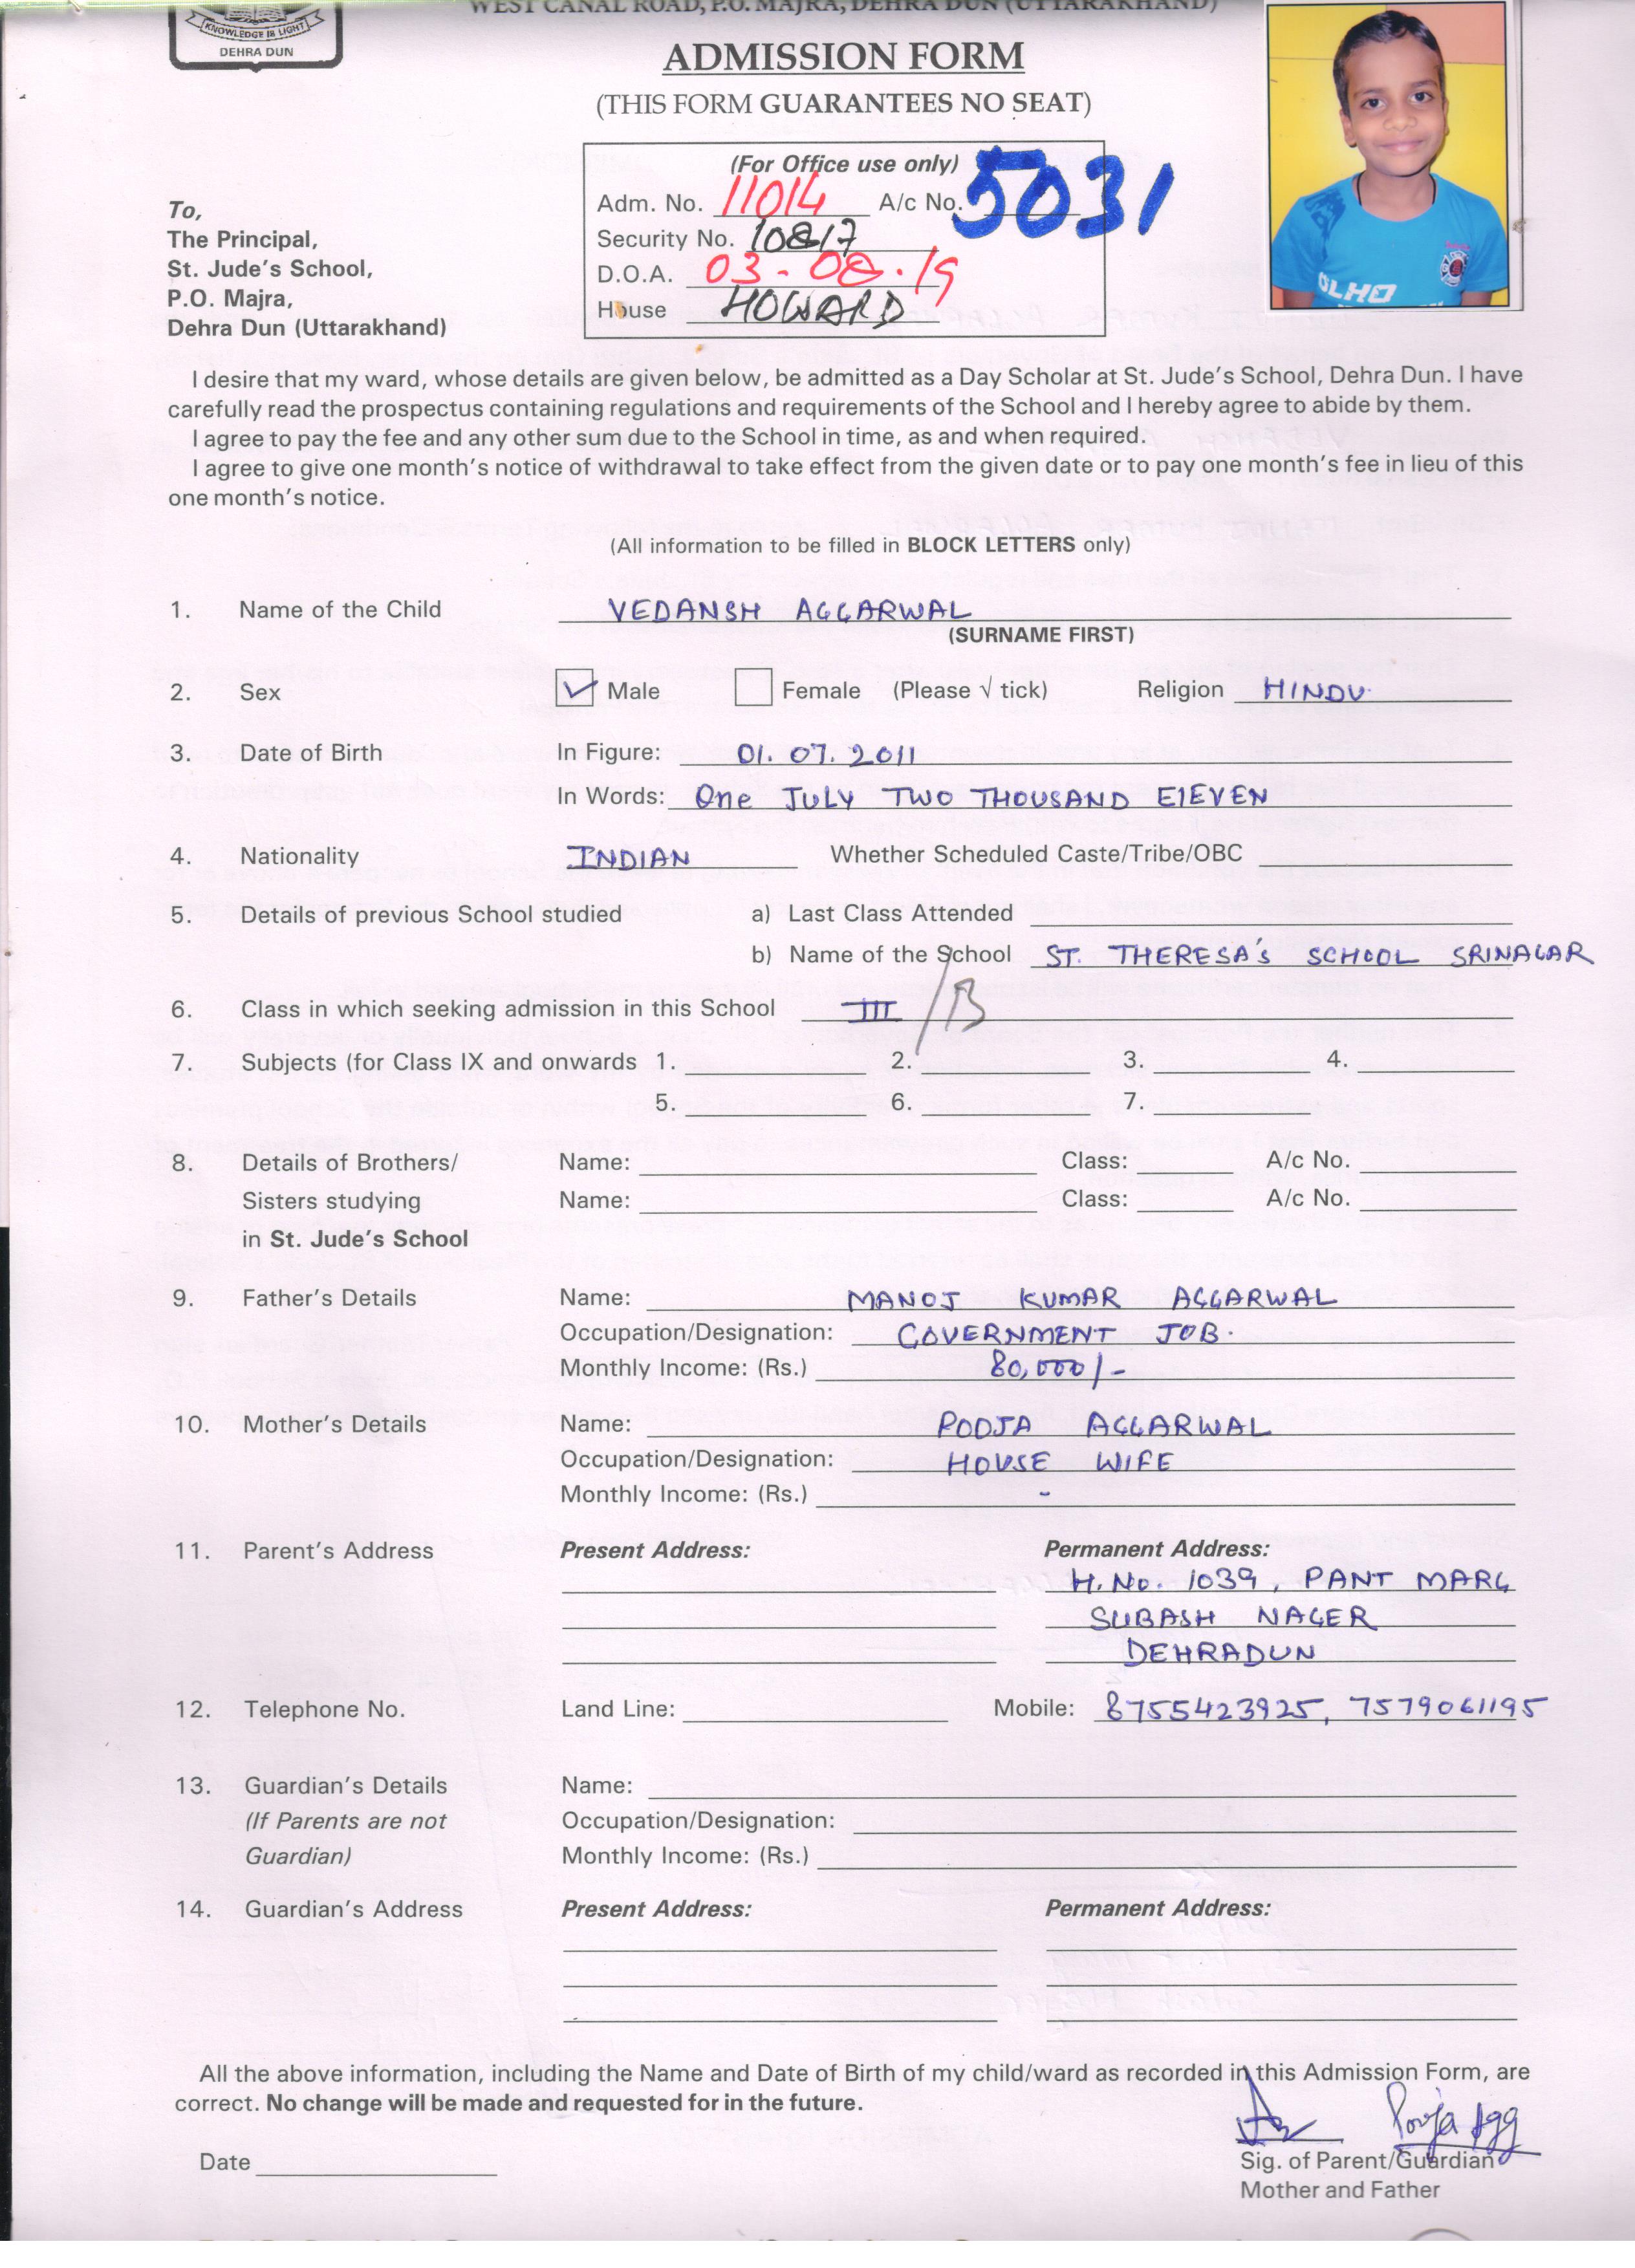 WEST CANAL ROAD, P.O. MAJRA, DEHRA DUN (UTTARAKHAND)
KNOWLEDGE IS LIGHT
DEHRA DUN
ADMISSION FORM
(THIS FORM GUARANTEES NO SEAT)
(For Office use only)
Adm. No. 11014 A/c No. 5031
Security No. 10817
D.O.A. 03-08.19
House HOWARD
To,
The Principal,
St. Jude's School,
P.O. Majra,
Dehra Dun (Uttarakhand)
OLHO
I desire that my ward, whose details are given below, be admitted as a Day Scholar at St. Jude's School, Dehra Dun. I have
carefully read the prospectus containing regulations and requirements of the School and I hereby agree to abide by them.
I agree to pay the fee and any other sum due to the School in time, as and when required.
I agree to give one month's notice of withdrawal to take effect from the given date or to pay one month's fee in lieu of this
one month's notice.
(All information to be filled in BLOCK LETTERS only)
1. Name of the Child VEDANSH AGGARWAL
(SURNAME FIRST)
2. Sex ✓ Male Female (Please √ tick) Religion HINDU
3. Date of Birth In Figure: 01.07.2011
In Words: One JULY TWO THOUSAND ElEVEN
4. Nationality INDIAN Whether Scheduled Caste/Tribe/OBC
5. Details of previous School studied a) Last Class Attended
b) Name of the School ST. THERESA's SCHOOL SRINAGAR
6. Class in which seeking admission in this School III/B
7. Subjects (for Class IX and onwards 1. 2. 3. 4.
5. 6. 7.
8. Details of Brothers/ Name: Class: A/c No.
Sisters studying Name: Class: A/c No.
in St. Jude's School
9. Father's Details Name: MANOJ KUMAR AGGARWAL
Occupation/Designation: GOVERNMENT JOB.
Monthly Income: (Rs.) 80,000/-
10. Mother's Details Name: POOJA AGGARWAL
Occupation/Designation: HOUSE WIFE
Monthly Income: (Rs.) -
11. Parent's Address Present Address: Permanent Address:
H.No. 1039, PANT MARG
SUBASH NAGER
DEHRADUN
12. Telephone No. Land Line: Mobile: 8755423925, 7579061195
13. Guardian's Details Name:
(If Parents are not Occupation/Designation:
Guardian) Monthly Income: (Rs.)
14. Guardian's Address Present Address: Permanent Address:
All the above information, including the Name and Date of Birth of my child/ward as recorded in this Admission Form, are
correct. No change will be made and requested for in the future.
Pooja Agg
Date Sig. of Parent/Guardian
Mother and Father